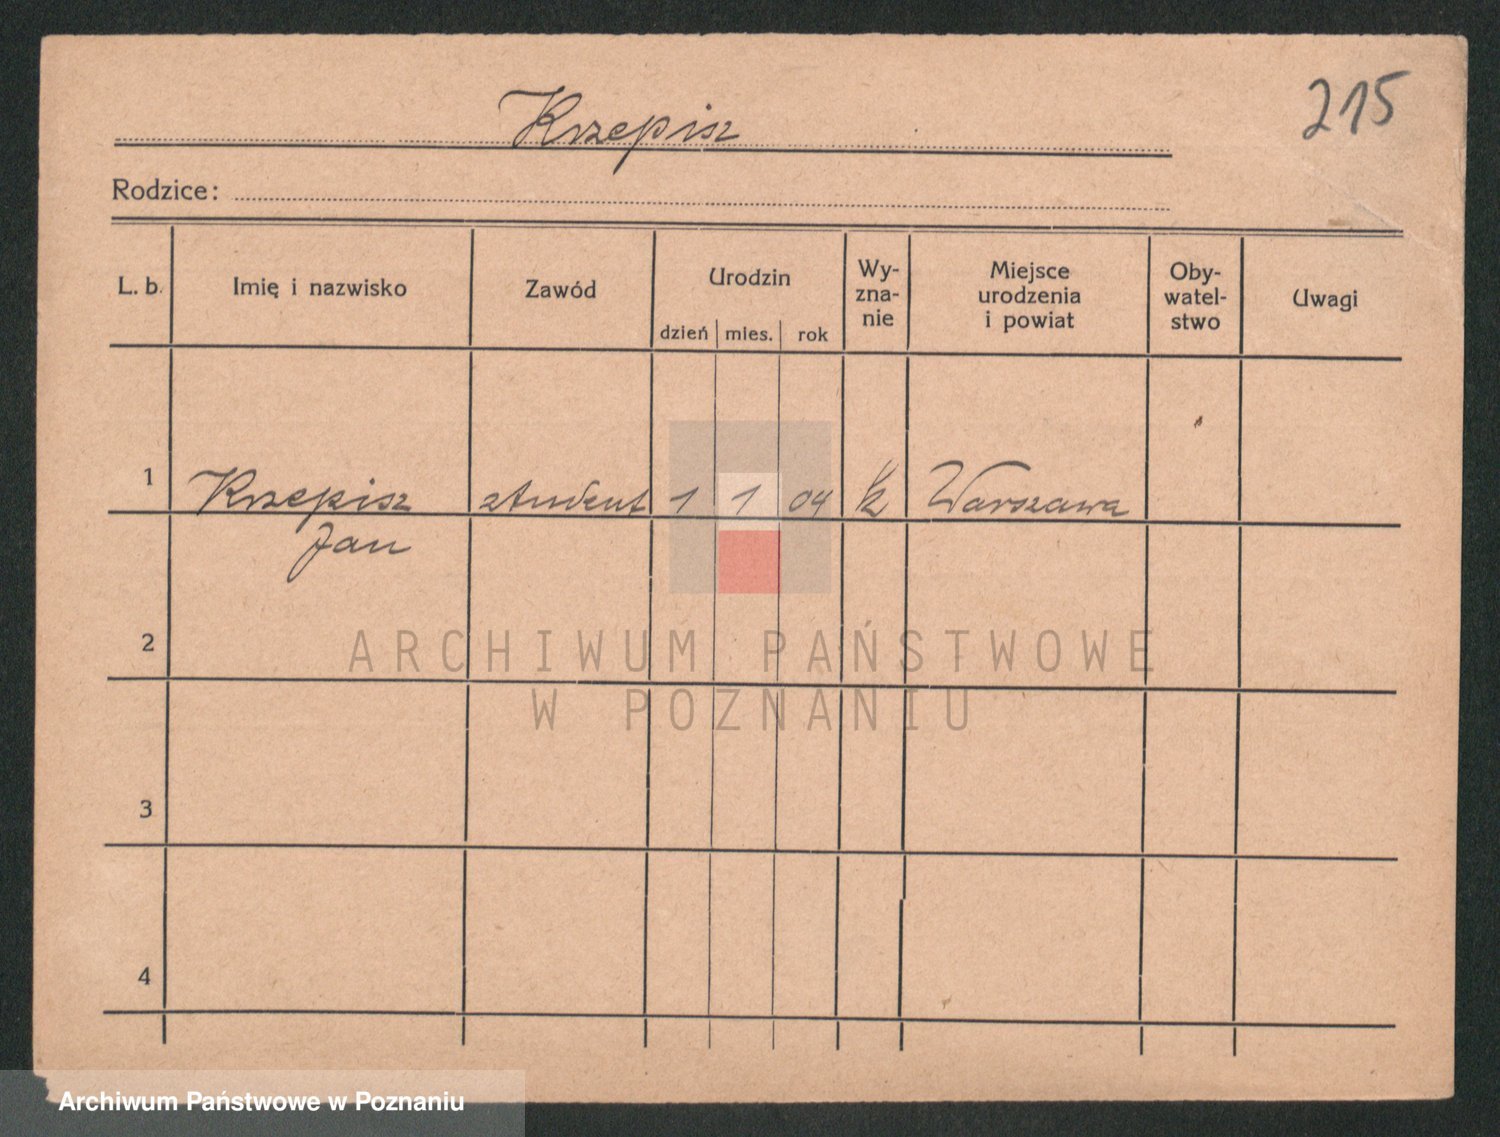 215
Krzepisz
Rodzice:
L. b. Imię i nazwisko Zawód Urodzin dzień mies. rok Wy-zna-nie Miejsce urodzenia i powiat Oby-watel-stwo Uwagi
1 Krzepisz student 1 1 04 k Warszawa
Jan
2
ARCHIWUM PAŃSTWOWE
W POZNANIU
3
4
Archiwum Państwowe w Poznaniu